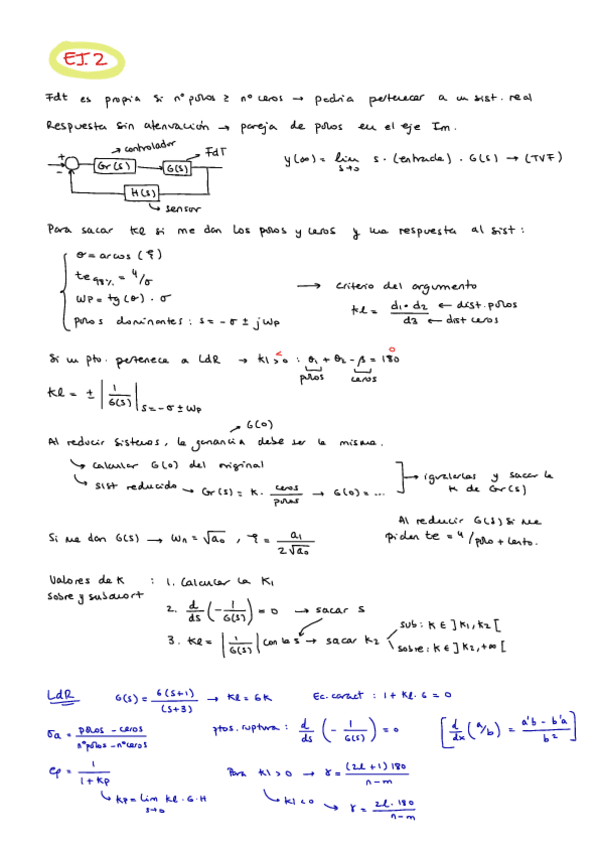 EJ.2
Fdt es propia si nº polos ≥ nº ceros → podria pertenecer a un sist. real
Respuesta sin atenuación → pareja de polos en el eje Im.
controlador
FdT
+
-
Gr(s)
G(s)
H(s)
sensor
y(∞) = lim s→0 s · (entrada) · G(s) → (TVF)
Para sacar kl si me dan los polos y ceros y una respuesta al sist :
θ = arcos (ξ)
te98% = 4/σ
wp = tg(θ) · σ
polos dominantes : s = -σ ± jwp
→ criterio del argumento
kl = d1 · d2 / d3 ← dist. polos ← dist ceros
Si un pto. pertenece a LdR → kl > 0 : θ1 + θ2 - β = 180
< 0
polos ceros
kl = ± |1/G(s)| s = -σ ± wp
G(0)
Al reducir sistemas, la ganancia debe ser la misma.
↳ calcular G(0) del original
↳ sist reducido → Gr(s) = k · ceros/polos → G(0) = ...
→ igualarlas y sacar la k de Gr(s)
Si me dan G(s) → wn = √a0 , ξ = a1 / 2√a0
Al reducir G(s) si me piden te = 4/polo + lento.
Valores de k : 1. Calcular la k1
sobre y subamort
2. d/ds (-1/G(s)) = 0 → sacar s
3. kl = |1/G(s)| con la s → sacar k2
sub : k ∈ ]k1, k2[
sobre : k ∈ ]k2, +∞[
LdR G(s) = 6(s+1)/(s+3) → kl = 6k Ec. caract : 1 + kl · G = 0
σa = polos - ceros / nº polos - nº ceros
ptos. ruptura : d/ds (-1/G(s)) = 0
[d/dx (a/b) = a'b - b'a / b²]
ep = 1 / 1 + kp
↳ kp = lim s→0 kl · G · H
Para kl > 0 → γ = (2l + 1) 180 / n - m
↳ kl < 0 → γ = 2l · 180 / n - m